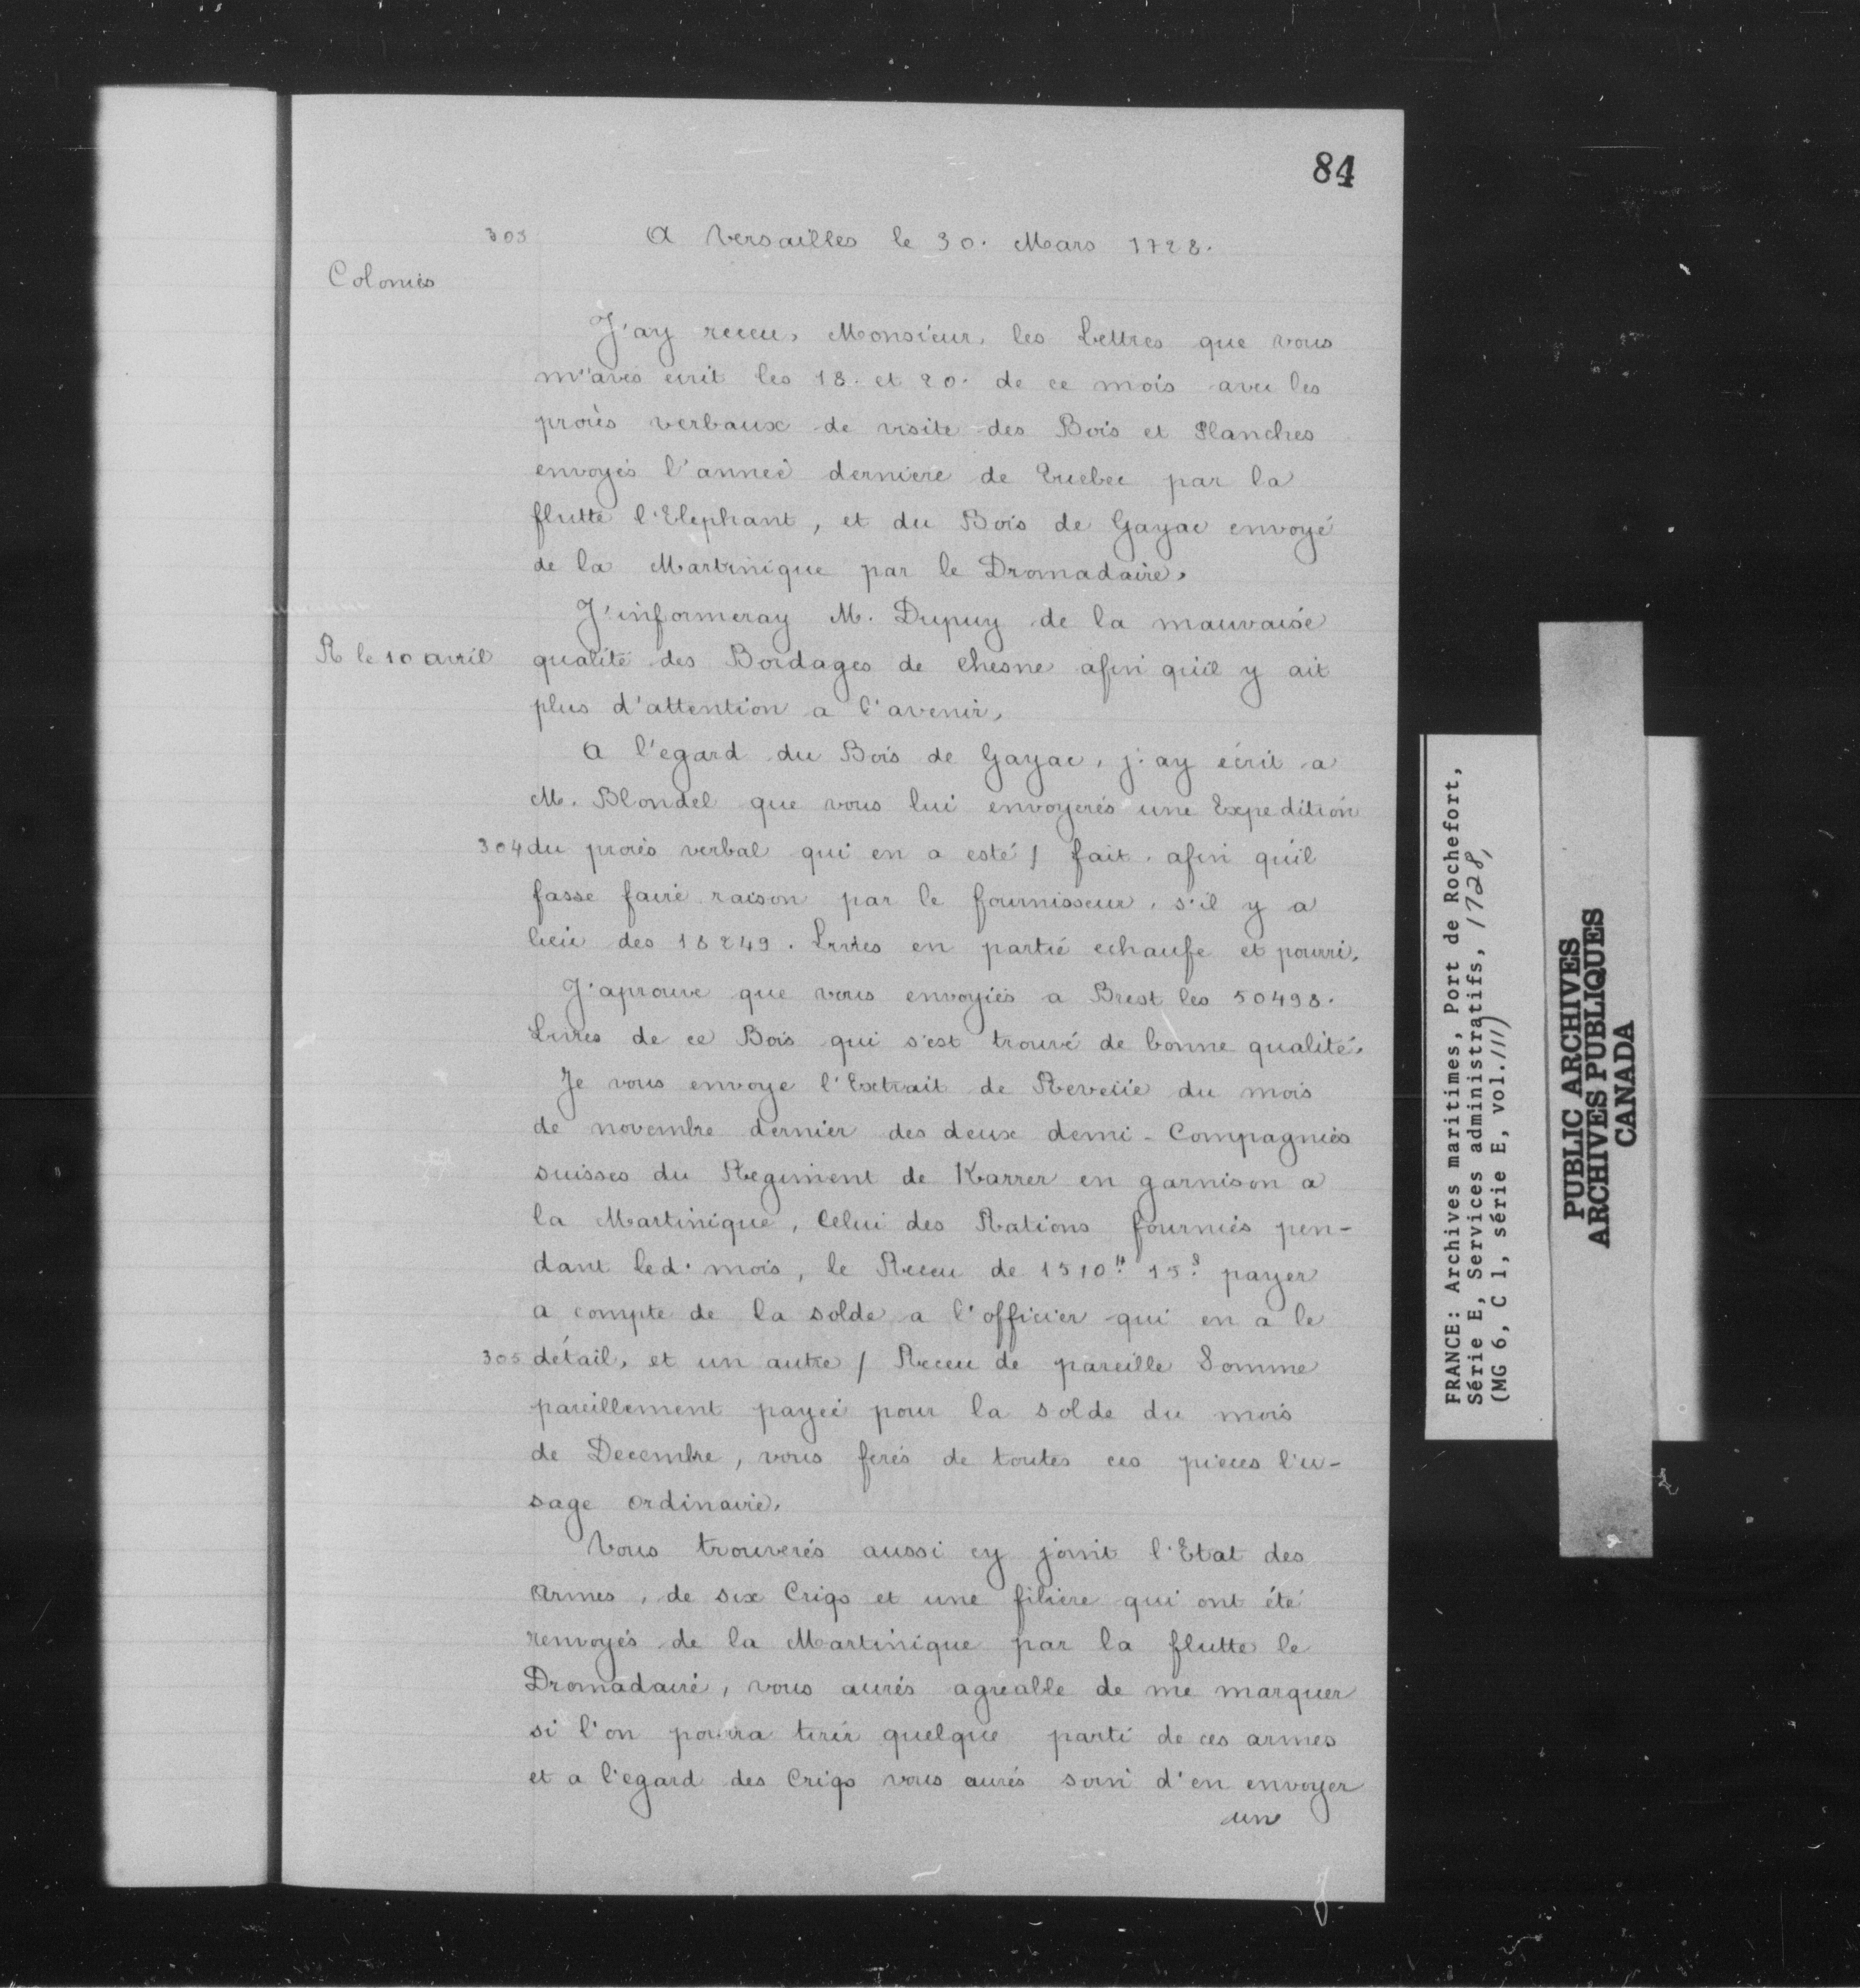 84
303 A Versailles le 30. Mars 1728.
Colonies
J'ay receu, Monsieur, les Lettres que vous
m'avés ecrit les 18. et 20. de ce mois avec les
procès verbaux de visite des Bois et Planches
envoyés l'année derniere de Quebec par la
flutte l'Elephant, et du Bois de Gayac envoyé
de la Martinique par le Dromadaire.
J'informeray M. Dupuy de la mauvaise
R le 10 avril qualité des Bordages de chesne afin qu'il y ait
plus d'attention a l'avenir.
A l'egard du Bois de Gayac, j'ay écrit a
M. Blondel que vous lui envoyerés une Expedition
304 du procés verbal qui en a esté / fait, afin qu'il
fasse faire raison par le fournisseur, s'il y a
lieu des 18249. Livres en partie echaufe et pourri.
J'aprouve que vous envoyiés a Brest les 50498.
Livres de ce Bois qui s'est trouvé de bonne qualité.
Je vous envoye l'Extrait de Reveüe du mois
de novembre dernier des deux demi-Compagnies
suisses du Regiment de Karrer en garnison a
la Martinique, Celui des Rations fournies pen-
dant led. mois, le Receu de 1510.tt 15.s payer
a compte de la solde a l'officier qui en a le
305 détail, et un autre / Receu de pareille Somme
pareillement payée pour la solde du mois
de Decembre, vous ferés de toutes ces pieces l'u-
sage ordinaire.
Vous trouverés aussi cy joint l'Etat des
Armes, de six Criqs et une filiere qui ont été
renvoyés de la Martinique par la flutte le
Dromadaire, vous aurés agréable de me marquer
si l'on pourra tirer quelque parti de ces armes
et a l'egard des Criqs vous aurés soin d'en envoyer
un
FRANCE: Archives maritimes, Port de Rochefort,
Série E, Services administratifs, 1728,
(MG 6, C 1, série E, vol. 111)
PUBLIC ARCHIVES
ARCHIVES PUBLIQUES
CANADA